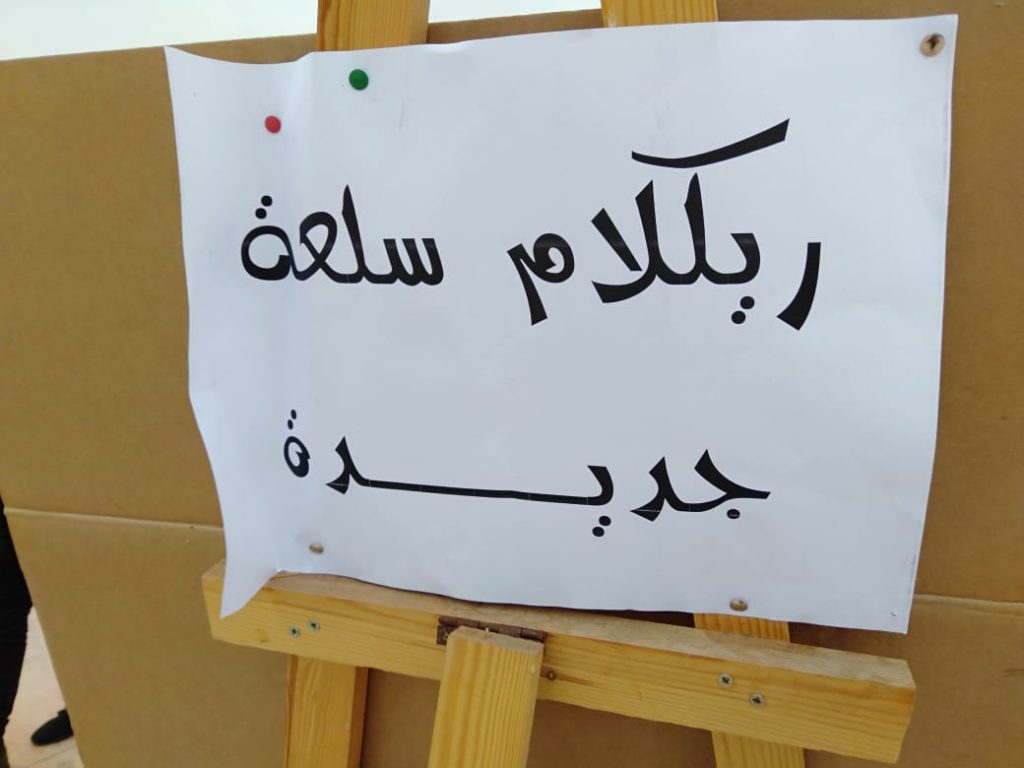 ريكلام سلعة
جديـــــدة